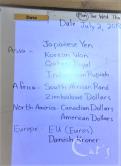 Date
Plan for Wed Thu
Date July 2, 20
Asia - Japanese Yen
Korean Won
Qatari Riyal
Indonesian Rupiah
Africa - South African Rand
Zimbabwe Dollars
North America - Canadian Dollars
American Dollars
Europe - EU (Euros)
Danish Kroner